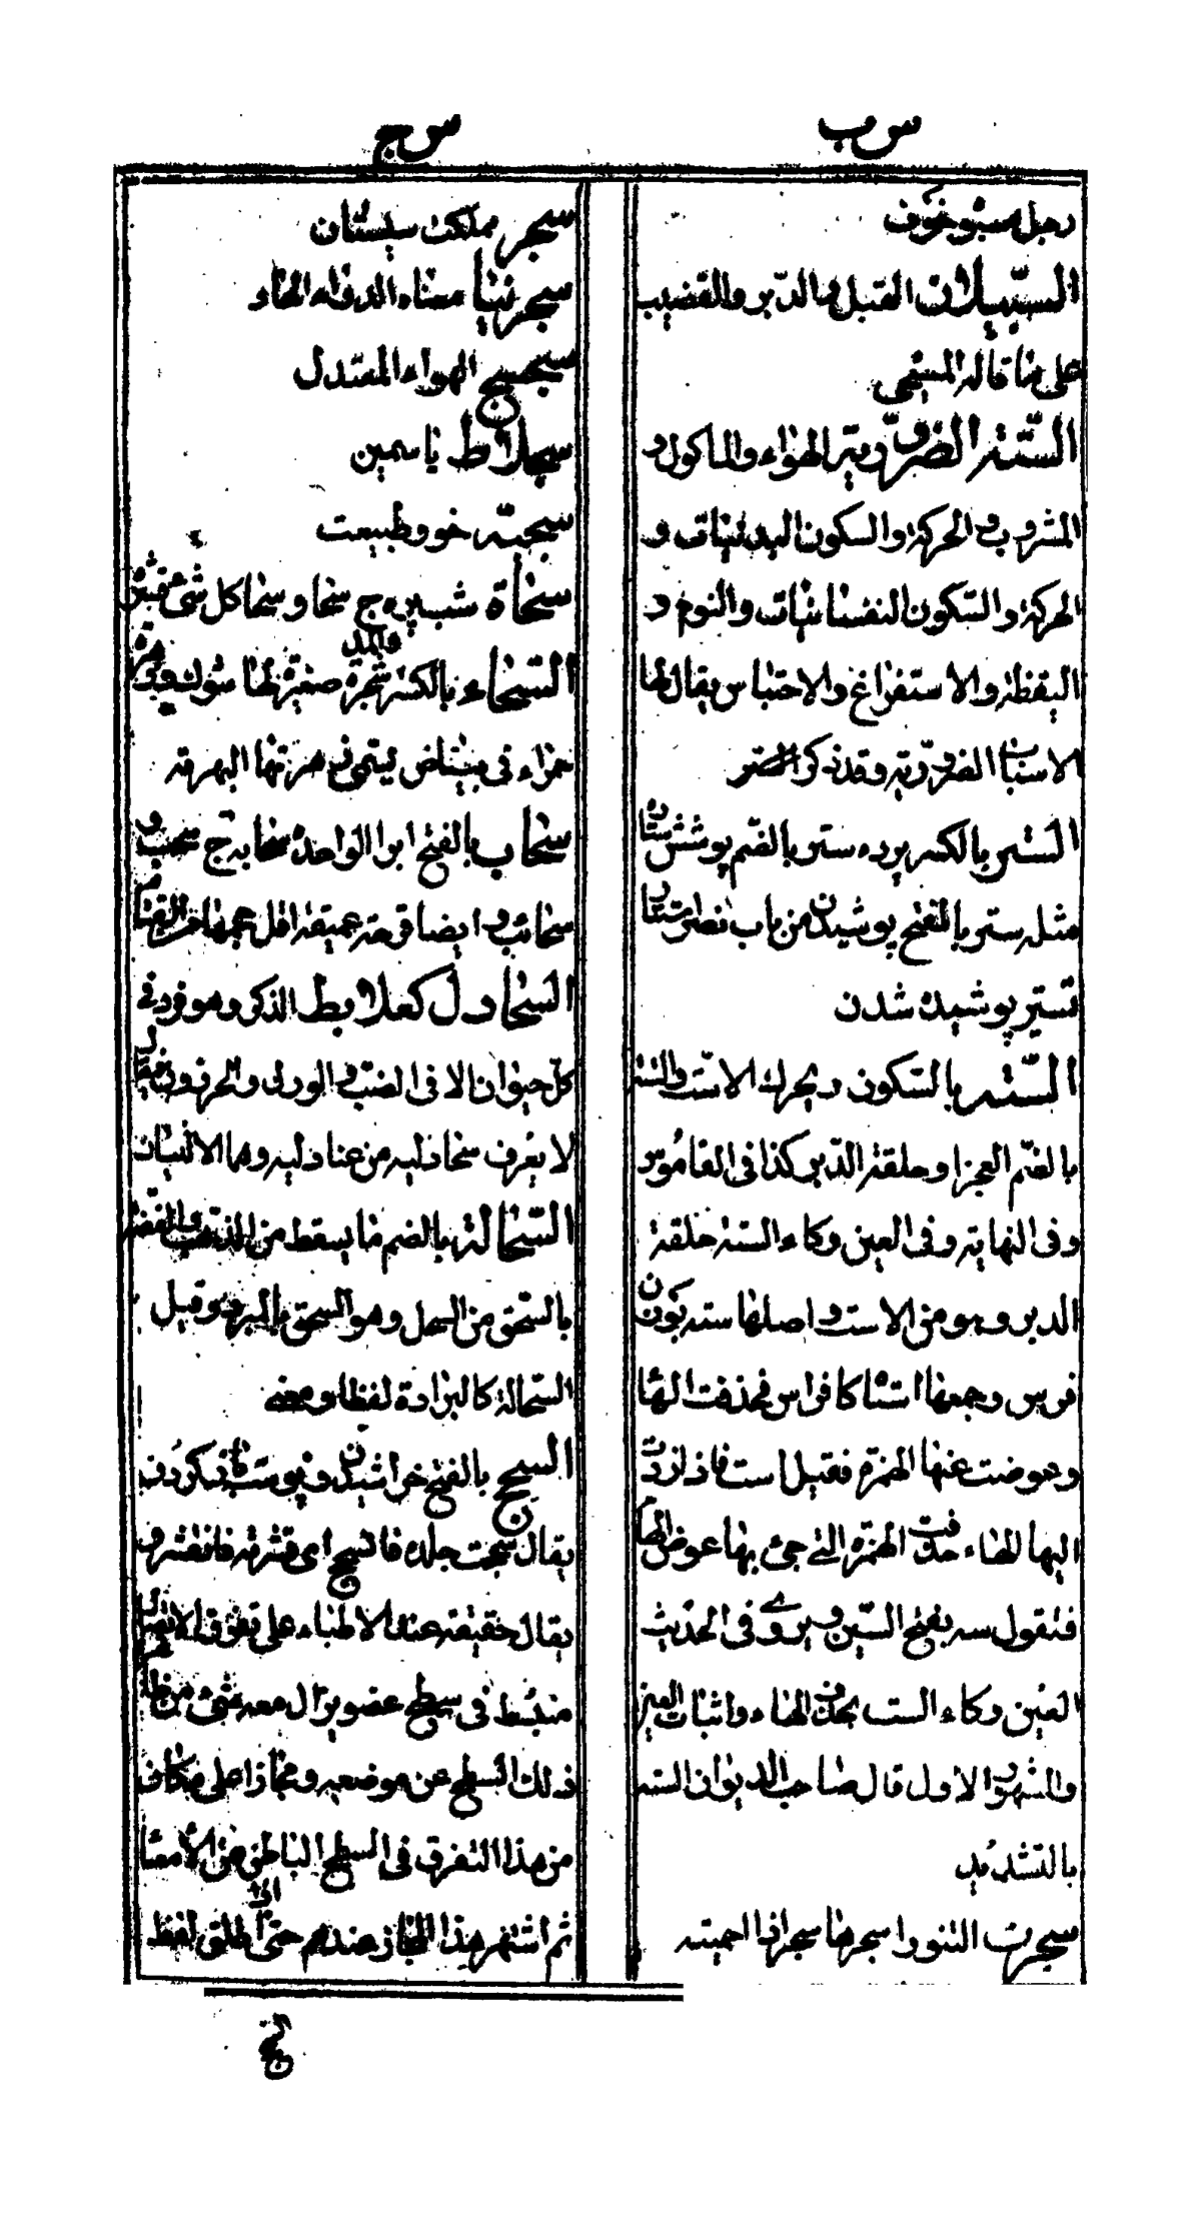 س ب
رجل مسبوخون
السّبيلان القبل و الدّبر والقضيب
على ما قاله المسيحى
السّتة الضروّريّة الهواء والماكول و
المشروب و الحركة والسكون البدنيات و
الحركة والسّكون النفسانيات والنوم و
اليقظة والاستفراغ والاحتباس يقال لها
الاسباب الضروريّة وقد ذكر
السّتر بالكسر پرده ستر بالضّم پوشش ستارة
مثله ستر بالفتح پوشيدن من باب نصر استتار
تستير پوشيده شدن
السّته بالسّكون ويحرك الاست والسته
بالضّم العجز او حلقة الدّبر كذا فى القاموس
وفى النهاية وفى العين وكاء السته حلقة
الدبر وهو من الاست و اصلها سته بوزن
فرس وجمعها استاه كافراس فحذفت الهاء
وعوضت عنها الهمزه فقيل است فاذا رددت
اليها الهاء حذفت الهمزه التى جىء بها عوض الهاء
فتقول سه بفتح السّين ويروى فى الحديث
العين وكاء الست بحذف الهاء واثبات العين
والمشهور الاول قال صاحب الديوان السته
بالتشديد
سجرت التنور اسجرها سجرا اذا احميته
س ج
سجر مملكت سيستان
سجرنيا معناه الدواء الحاد
سجسج الهواء المعتدل
سجلاط ياسمين
سجيّة خو وطبيعت
سحاة شب پره ج سحا و سحا كل شىء قشره
السّحاء بالكسر والمد شجرة صغيرة لها شوك وزهرة
حمراء فى بياض يسمى زهرتها البهرمة
سحاب بالفتح ابر الواحدة سحابة ج سحب و
سحائب و ايضا قرحة عميقة اقل عمقا من القتام
السّحادل كعلابط الذكر وهو فرد فى
كلّ حيوان الا فى الضب و الورل و الحرذون يقال
لا يعرف سحاذليه من عناذليه وهما الانثيان
السّحالة بالضم ما يسقط من الذهب والفضة
بالسّحق من السحل وهو السحق بالمبرد وقيل
السّحالة كالبرادة لفظا ومعنى
السحج بالفتح خراشيدن و پوست باز كردن
يقال سحجت جلده فانسحج اى قشرته فانقشر و
يقال حقيقة عند الاطباء على تفرق الاتصال
منبسط فى سطح عضو يزال معه شىء من ظاهر
ذلك السطح عن موضعه ومجازا على ما كان
من هذا التفرق فى السطح الباطن من الامعاء
ثم اشتهر هذا المجاز عندهم حتى اذا اطلق لفظ